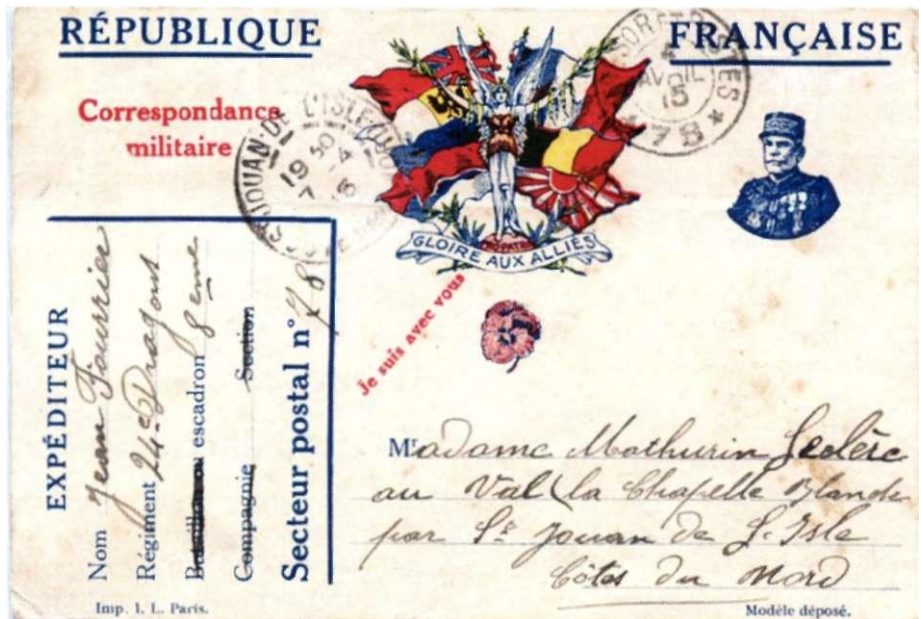 RÉPUBLIQUE FRANÇAISE
Correspondance
militaire
ST JOUAN-DE L'ISLE
19 30
7 4
15
TRESOR ET POSTES
AVRIL
15
* 78 *
GLOIRE AUX ALLIÉS
Je suis avec vous
EXPÉDITEUR
Nom Jean Fourrier
Régiment 24e Dragons
escadron 8eme
Compagnie Section
Secteur postal n° 78
Madame Mathurin Leclerc
au Val (la Chapelle Blanche
par St Jouan de L'Isle
Côtes du Nord
Imp. I. L. Paris.
Modèle déposé.